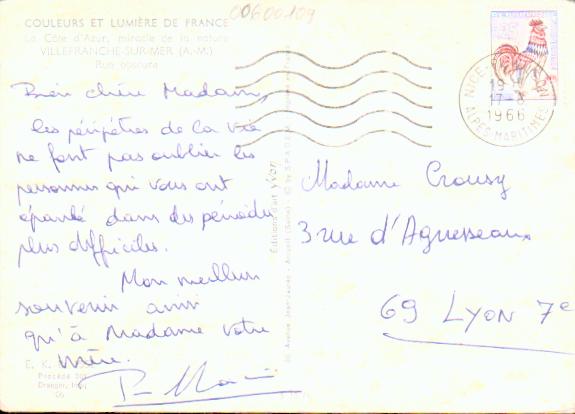 00600109
COULEURS ET LUMIÈRE DE FRANCE
La Côte d'Azur, miracle de la nature
VILLEFRANCHE-SUR-MER (A.-M.)
Rue obscure
Bien chère Madame,
Les péripéties de la vie
ne font pas oublier les
personnes qui vous ont
épaulé dans des périodes
plus difficiles.
Mon meilleur
souvenir ainsi
qu'à Madame votre
mère.
E. K.
Editions d'art yvon
NICE
19
17
1966
ALPES-MARITIMES
Madame Crousy
3 rue d'Aguesseau
69 LYON 7e